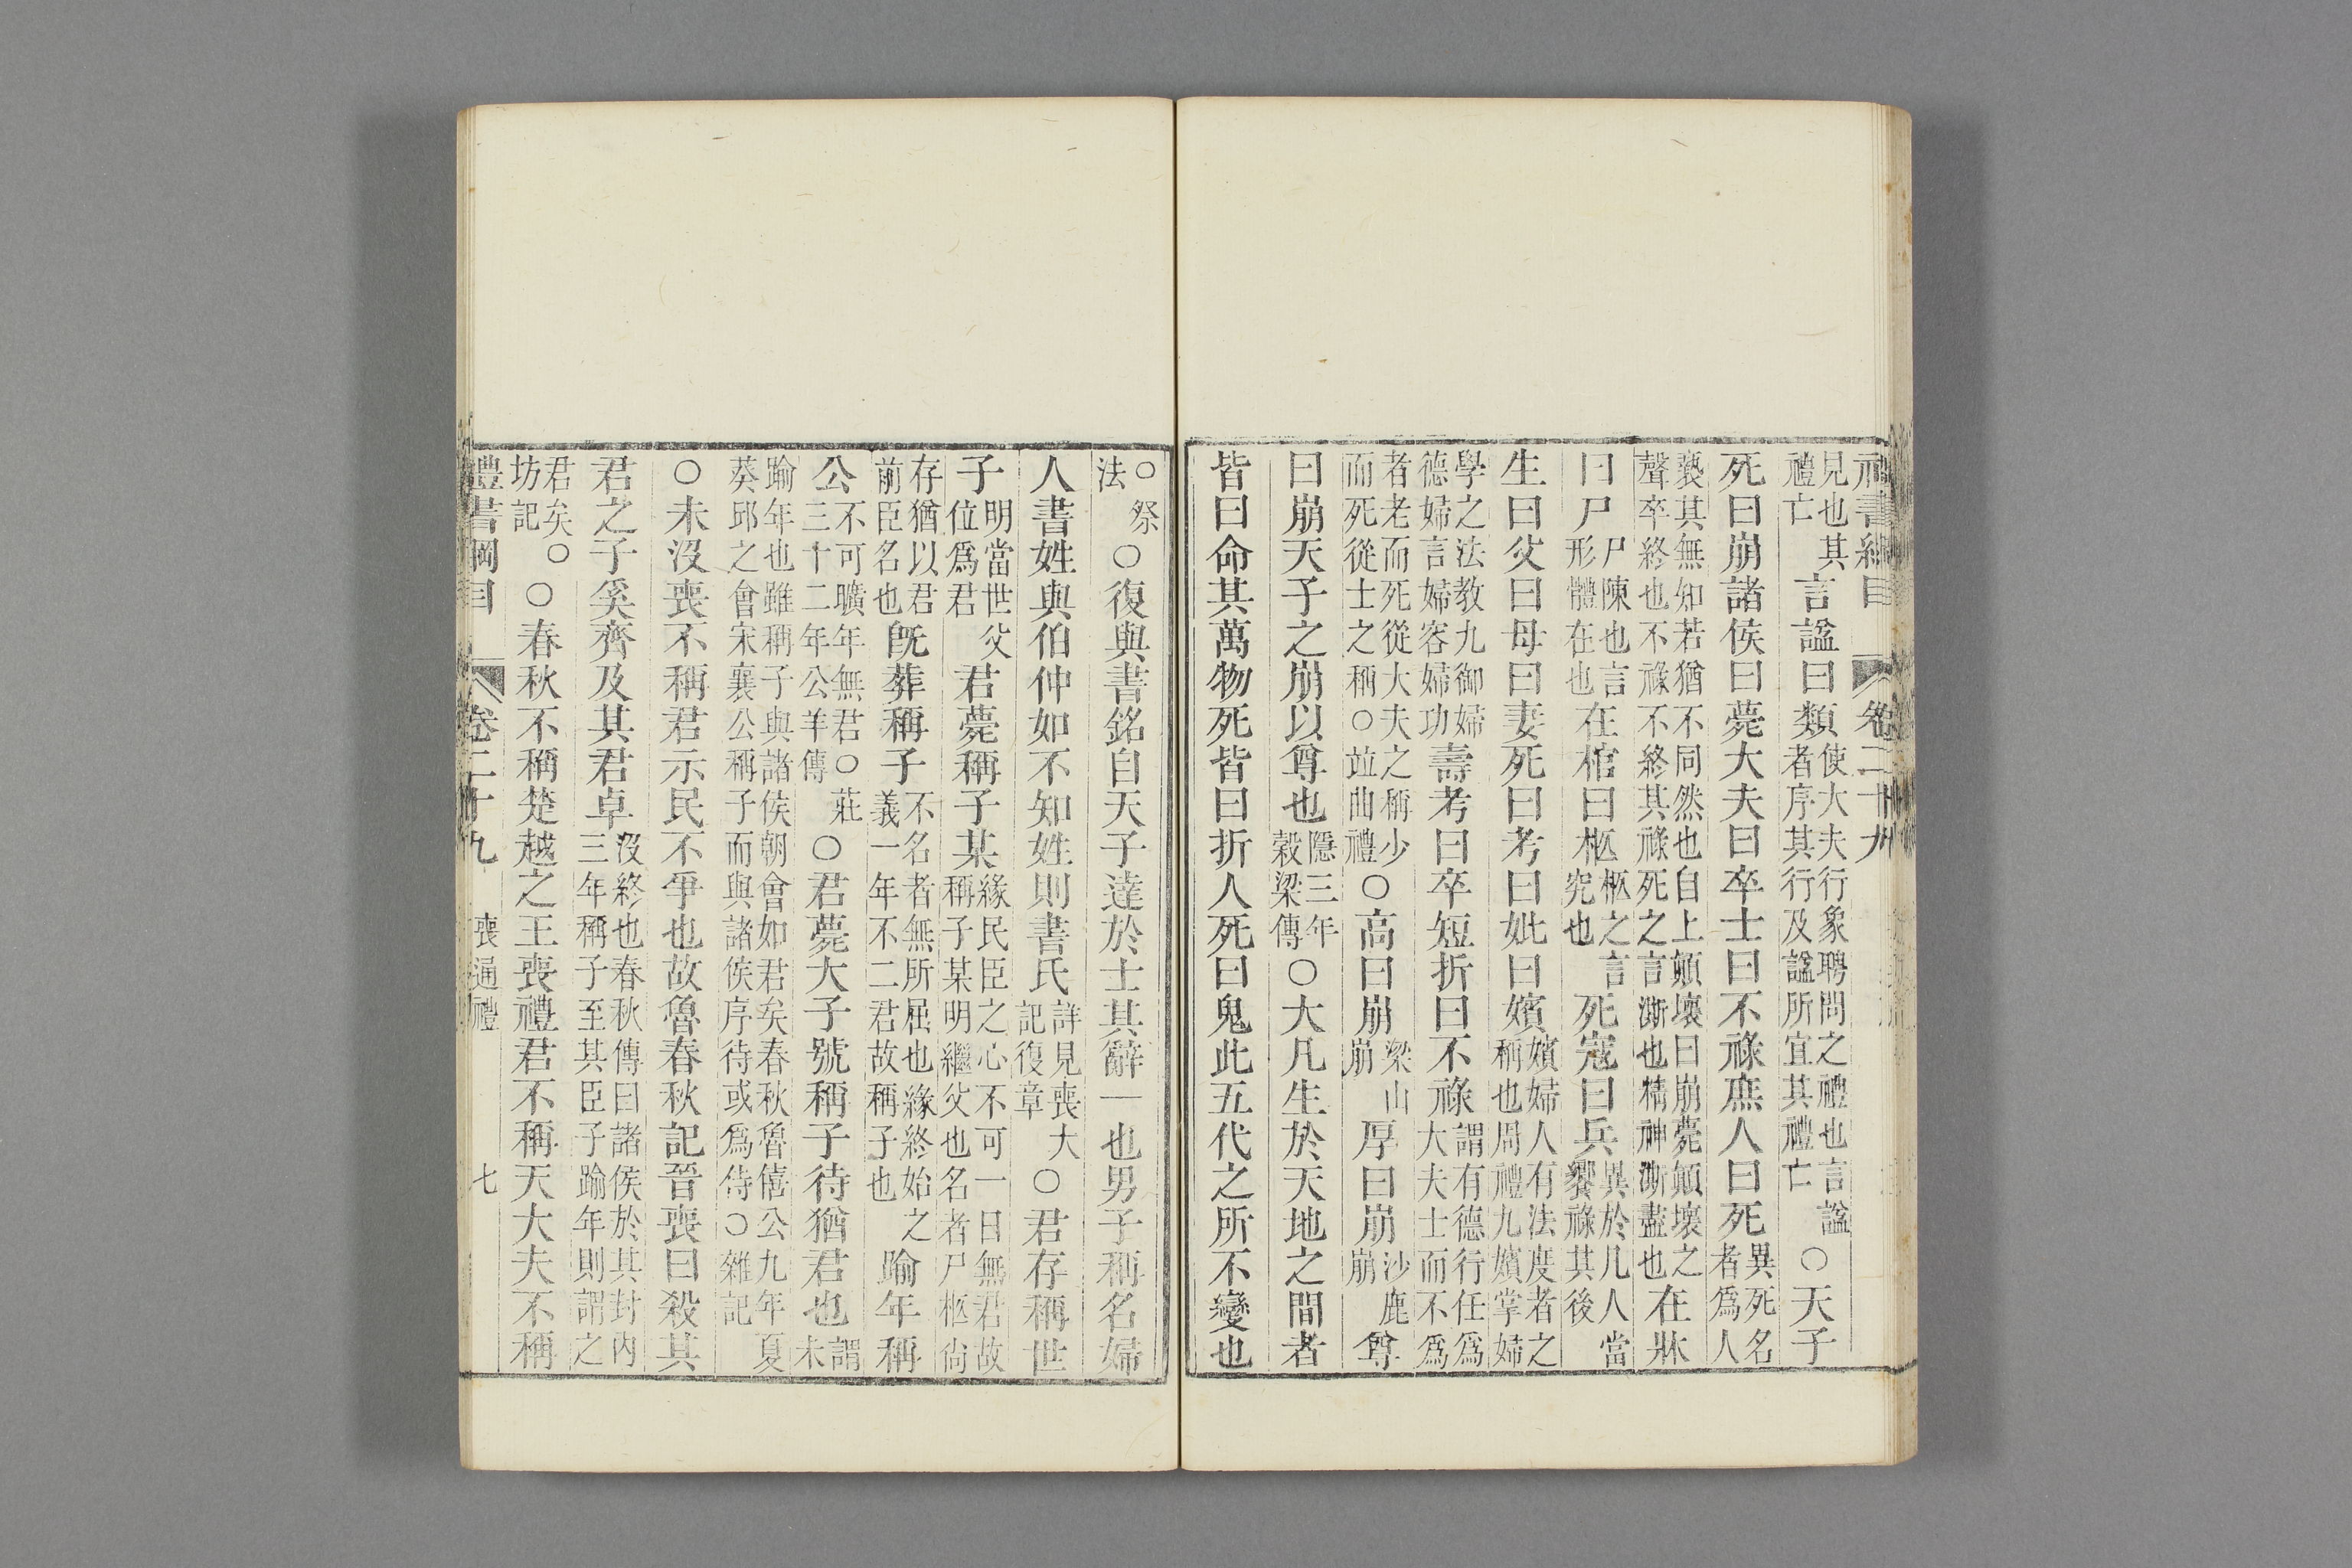 禮書綱目 卷二十九
見也其禮亡言諡曰類使大夫行象聘問之禮也言諡者序其行及諡所宜其禮亡○天子
死曰崩諸侯曰薨大夫曰卒士曰不祿庶人曰死異死名者爲人
褻其無知若猶不同然也自上顛壞曰崩薨顛壞之聲卒終也不祿不終其祿死之言澌也精神澌盡也在牀
曰尸尸陳也言形體在也在棺曰柩柩之言究也死寇曰兵異於凡人當饗祿其後
生曰父曰母曰妻死曰考曰妣曰嬪嬪婦人有法度者之稱也周禮九嬪掌婦
學之法教九御婦德婦言婦容婦功壽考曰卒短折曰不祿謂有德行任爲大夫士而不爲
者老而死從大夫之稱少而死從士之稱○竝曲禮○高曰崩梁山崩厚曰崩沙鹿崩尊
曰崩天子之崩以尊也隱三年穀梁傳○大凡生於天地之間者
皆曰命其萬物死皆曰折人死曰鬼此五代之所不變也
○祭法○復與書銘自天子達於士其辭一也男子稱名婦
人書姓與伯仲如不知姓則書氏詳見喪大記復章○君存稱世
子明當世父位爲君君薨稱子某緣民臣之心不可一日無君故稱子某明繼父也名者尸柩尚
存猶以君前臣名也旣葬稱子不名者無所屈也緣終始之義一年不二君故稱子也踰年稱
公不可曠年無君○莊三十二年公羊傳○君薨大子號稱子待猶君也謂未
踰年也雖稱子與諸侯朝會如君矣春秋魯僖公九年夏葵邱之會宋襄公稱子而與諸侯序待或爲侍○雜記
○未沒喪不稱君示民不爭也故魯春秋記晉喪曰殺其
君之子奚齊及其君卓沒終也春秋傳曰諸侯於其封內三年稱子至其臣子踰年則謂之
君矣○坊記○春秋不稱楚越之王喪禮君不稱天大夫不稱
禮書綱目 卷二十九 喪通禮 七